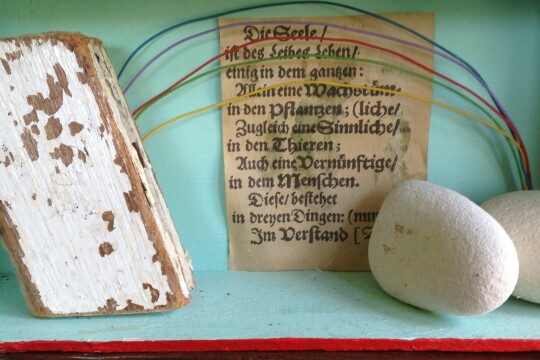 Die Seele/
ist des Leibes Leben/
einig in dem gantzen:
Allein eine Wachsthum-
in den Pflantzen; (liche/
Zugleich eine Sinnliche/
in den Thieren;
Auch eine Vernünftige/
in dem Menschen.
Diese/ bestehet
in dreyen Dingen: (nun
Im Verstand [